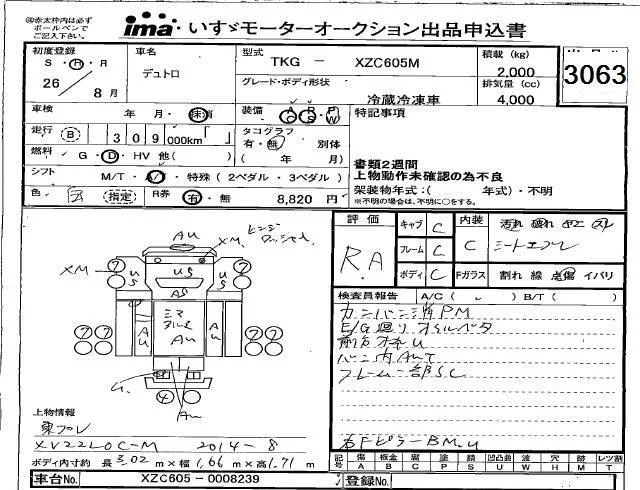 ※赤太枠内は必ず
ボールペンで
ご記入下さい。
ima いすゞモーターオークション出品申込書
初度登録 車名 型式 TKG - XZC605M 積載 (kg) 2,000
S・H・R デュトロ
26 8月
グレード・ボディ形状 冷蔵冷凍車 排気量 (cc) 4,000
3063
車検 年 月・抹消 装備 A C P S P W 特記事項
走行 B 309,000km タコグラフ
有・無 別体
燃料 G・D・HV 他( ) ( 年 月)
シフト M/T・A/T・特殊(2ペダル・3ペダル)
書類2週間
上物動作未確認の為不良
架装物年式:( 年式)・不明
※不明の場合は、不明に○をする。
色 白 指定 R券 有・無 8,820 円
評価 キャブ C 内装 汚れ 破れ
R.A フレーム C C
ボディ C Fガラス 割れ 線 点傷 イバリ
AU
XM
XM
US
US
US
AS
AU
AU
AU
AU
検査員報告 A/C( ) B/T( )
E/G廻りオイルベタ
バン内AUT
フレーム一部SC
右FピラーBM.U
上物情報
東プレ
XV22LOC-M 2014-8
ボディ内寸約 長3.02m×幅1.66m×高1.71m
記号 傷 A 板金 B 腐 C 塗 P 錆 S 凹凸曲 U 波 W 穴 H 欠 M レツ割 T
車台No. XZC605-0008239 登録No.